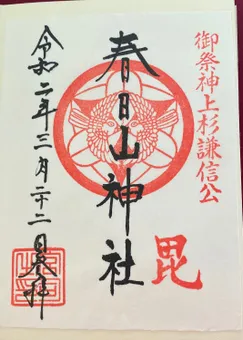 御祭神上杉謙信公
春日山神社
毘
令和二年三月二十二日奉拝